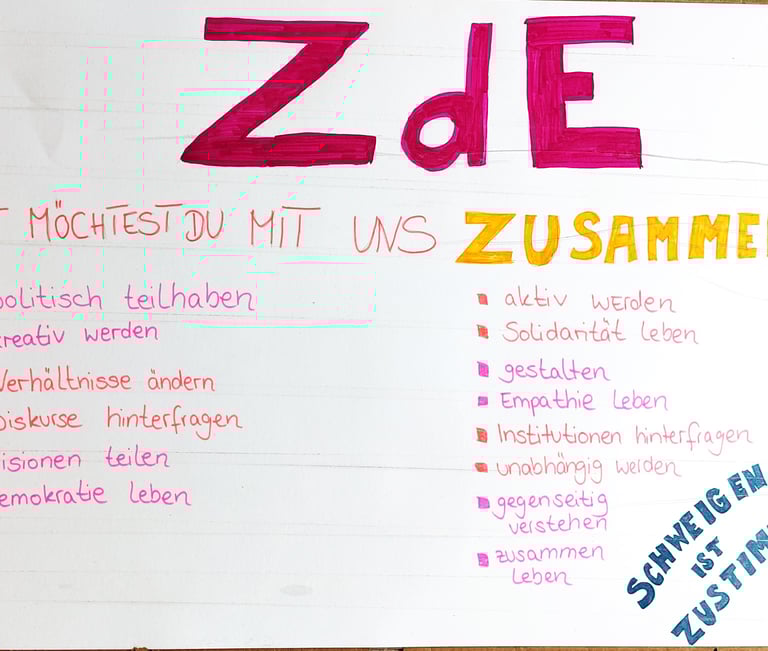 ZdE
T MÖCHTEST DU MIT UNS ZUSAMME
politisch teilhaben
kreativ werden
Verhältnisse ändern
Diskurse hinterfragen
isionen teilen
emokratie leben
aktiv werden
Solidarität leben
gestalten
Empathie leben
Institutionen hinterfragen
unabhängig werden
gegenseitig
verstehen
zusammen
leben
SCHWEIGEN
IST
ZUSTIM